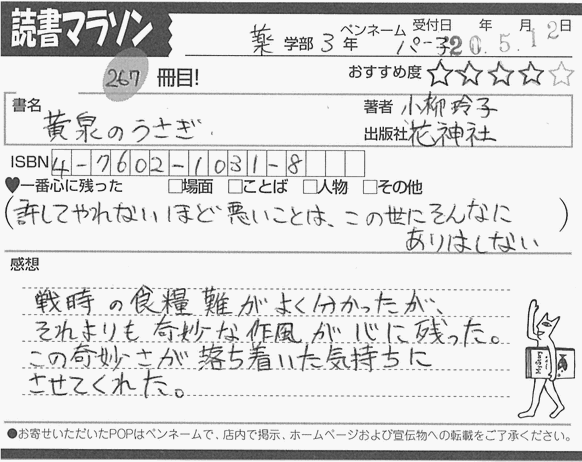 読書マラソン
薬 学部 3 年 ペンネーム パー子 受付日 20.5.12 年 月 日
267 冊目! おすすめ度 ☆☆☆☆☆
書名 黄泉のうさぎ 著者 小柳玲子
出版社 花神社
ISBN 4-7602-1031-8
♥一番心に残った □場面 □ことば □人物 □その他
(許してやれないほど悪いことは、この世にそんなに
ありはしない)
感想
戦時の食糧難がよく分かったが、
それよりも奇妙な作風が心に残った。
この奇妙さが落ち着いた気持ちに
させてくれた。
●お寄せいただいたPOPはペンネームで、店内で掲示、ホームページおよび宣伝物への転載をご了承ください。